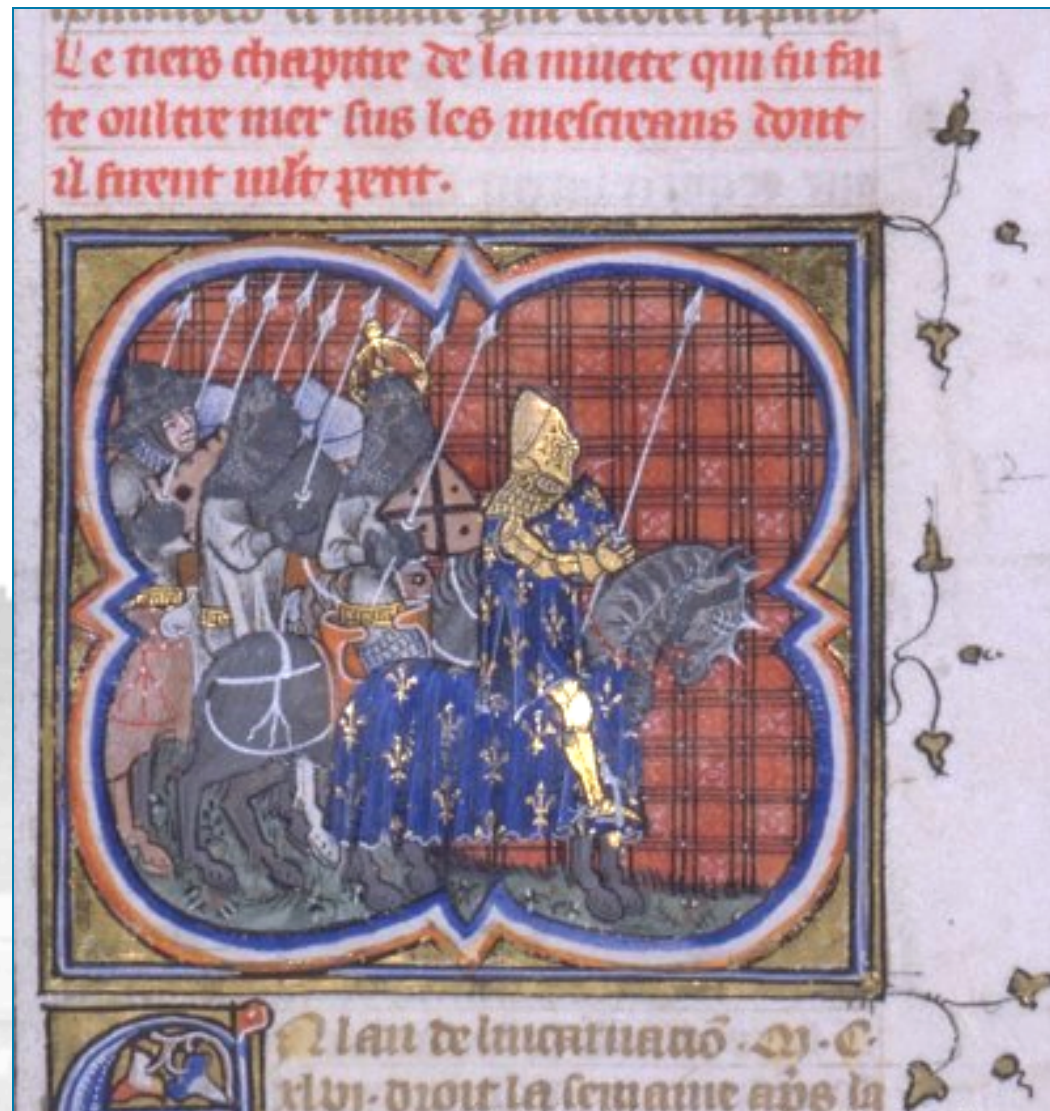 Le tiers chapitre de la muete qui fu fai
te oultre mer sus les mescreans dont
il furent mlt petit.
En lan de lincarnatiō .M.C.
xlvi. droit la semaine aps la